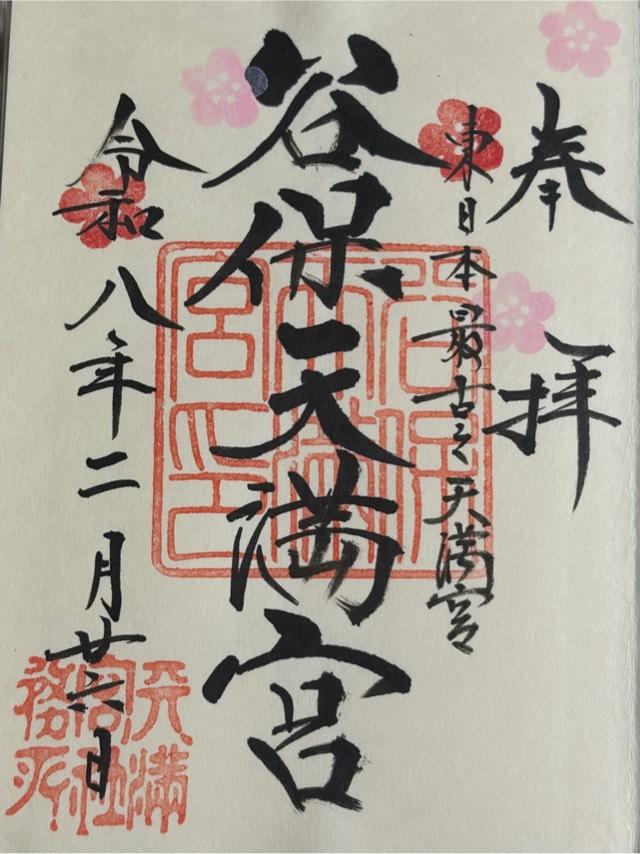 奉拝
東日本最古之天満宮
谷保天満宮
令和八年二月廿六日
谷保天満宮印
天満宮社務所